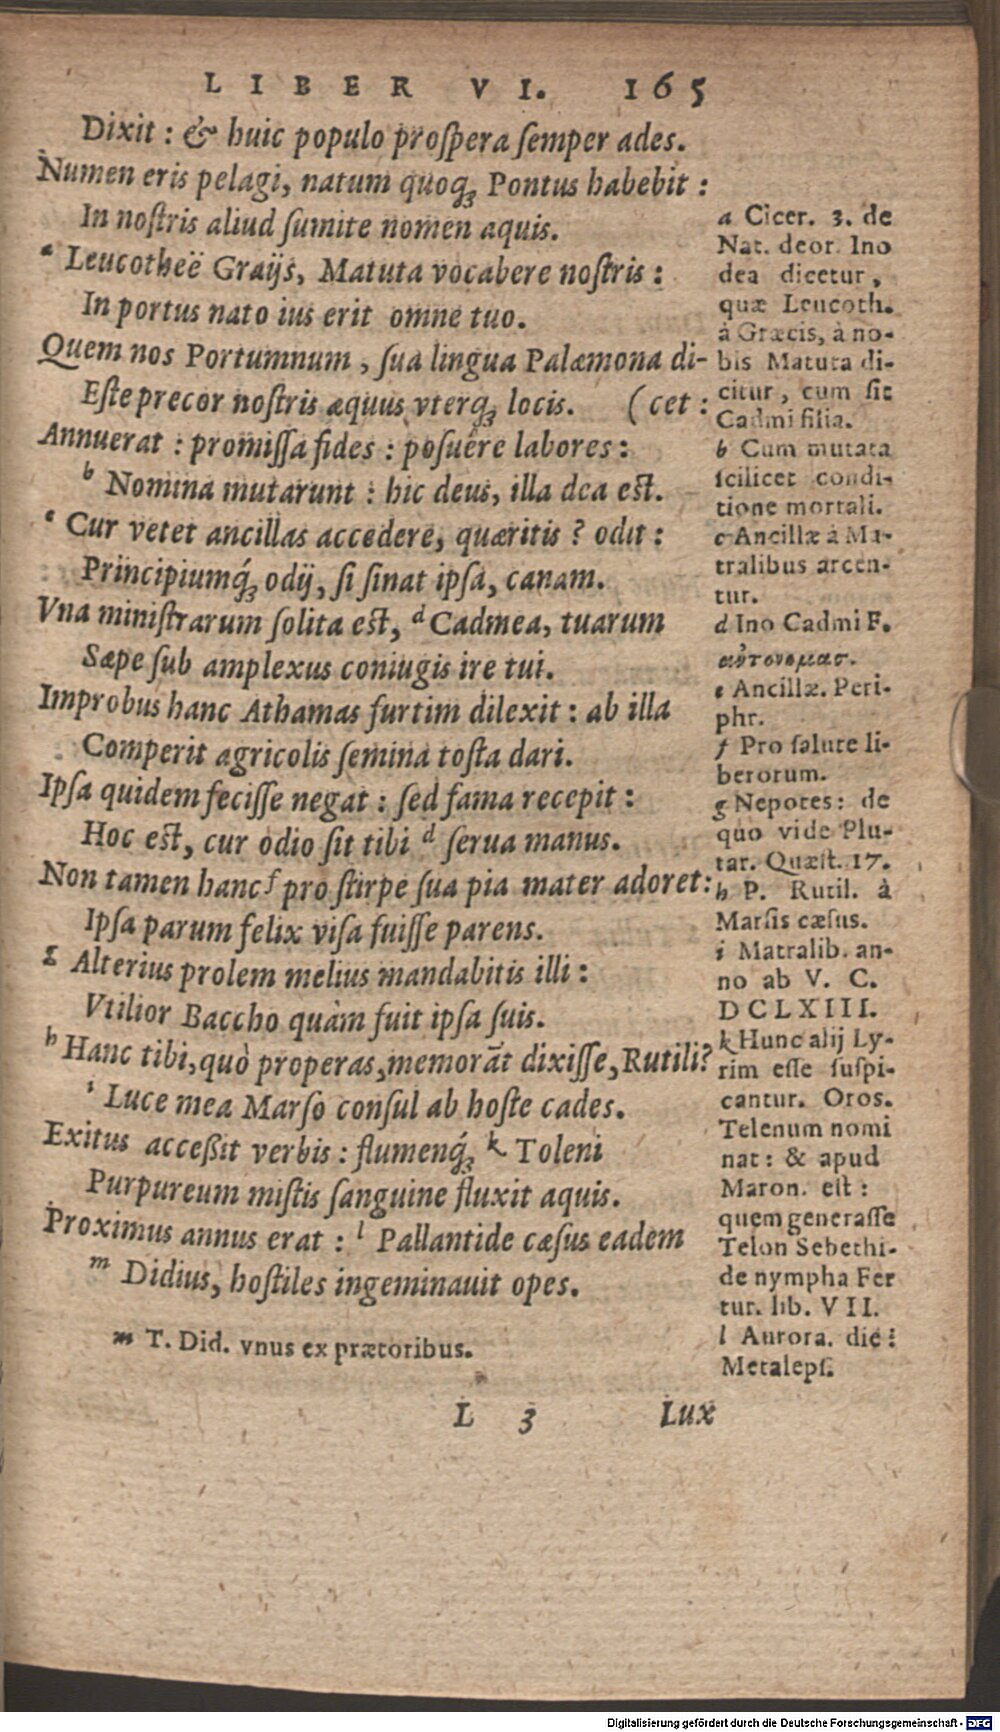 LIBER VI. 165
Dixit : & huic populo proſpera ſemper ades.
Numen eris pelagi, natum quoqꝫ Pontus habebit :
In noſtris aliud ſumite nomen aquis.
a Leucotheë Graijs, Matuta vocabere noſtris :
In portus nato ius erit omne tuo.
Quem nos Portumnum, ſua lingua Palæmona di-
Eſte precor noſtris æquus vterqꝫ locis. (cet :
Annuerat : promiſſa fides : poſuêre labores :
b Nomina mutarunt : hic deus, illa dea est.
c Cur vetet ancillas accedere, quæritis ? odit :
Principiumq́ꝫ odij, ſi ſinat ipſa, canam.
Vna miniſtrarum ſolita est, d Cadmea, tuarum
Sæpe ſub amplexus coniugis ire tui.
Improbus hanc Athamas furtim dilexit : ab illa
Comperit agricolis ſemina toſta dari.
Ipſa quidem feciſſe negat : ſed fama recepit :
Hoc est, cur odio ſit tibi d ſerua manus.
Non tamen hanc f pro ſtirpe ſua pia mater adoret :
Ipſa parum felix viſa fuiſſe parens.
g Alterius prolem melius mandabitis illi :
Vtilior Baccho quàm fuit ipſa ſuis.
h Hanc tibi, quò properas, memorãt dixiſſe, Rutili?
i Luce mea Marſo conſul ab hoſte cades.
Exitus acceßit verbis : flumenq́ꝫ k Toleni
Purpureum miſtis ſanguine fluxit aquis.
Proximus annus erat : l Pallantide cæſus eadem
m Didius, hoſtiles ingeminauit opes.
m T. Did. vnus ex prætoribus.
a Cicer. 3. de
Nat. deor. Ino
dea dicetur,
quæ Leucoth.
à Græcis, à no-
bis Matuta di-
citur, cum ſit
Cadmi filia.
b Cum mutata
ſcilicet condi-
tione mortali.
c Ancillæ à Ma-
tralibus arcen-
tur.
d Ino Cadmi F.
αὐτονομασ.
e Ancillæ. Peri-
phr.
f Pro ſalute li-
berorum.
g Nepotes: de
quo vide Plu-
tar. Quæſt. 17.
h P. Rutil. à
Marſis cæſus.
i Matralib. an-
no ab V. C.
DCLXIII.
k Hunc alij Ly-
rim eſſe ſuſpi-
cantur. Oros.
Telenum nomi
nat: & apud
Maron. eſt :
quem generaſſe
Telon Sebethi-
de nympha Fer
tur. lib. VII.
l Aurora. die:
Metalepſ.
L 3 Lux
Digitalisierung gefördert durch die Deutsche Forschungsgemeinschaft - DFG